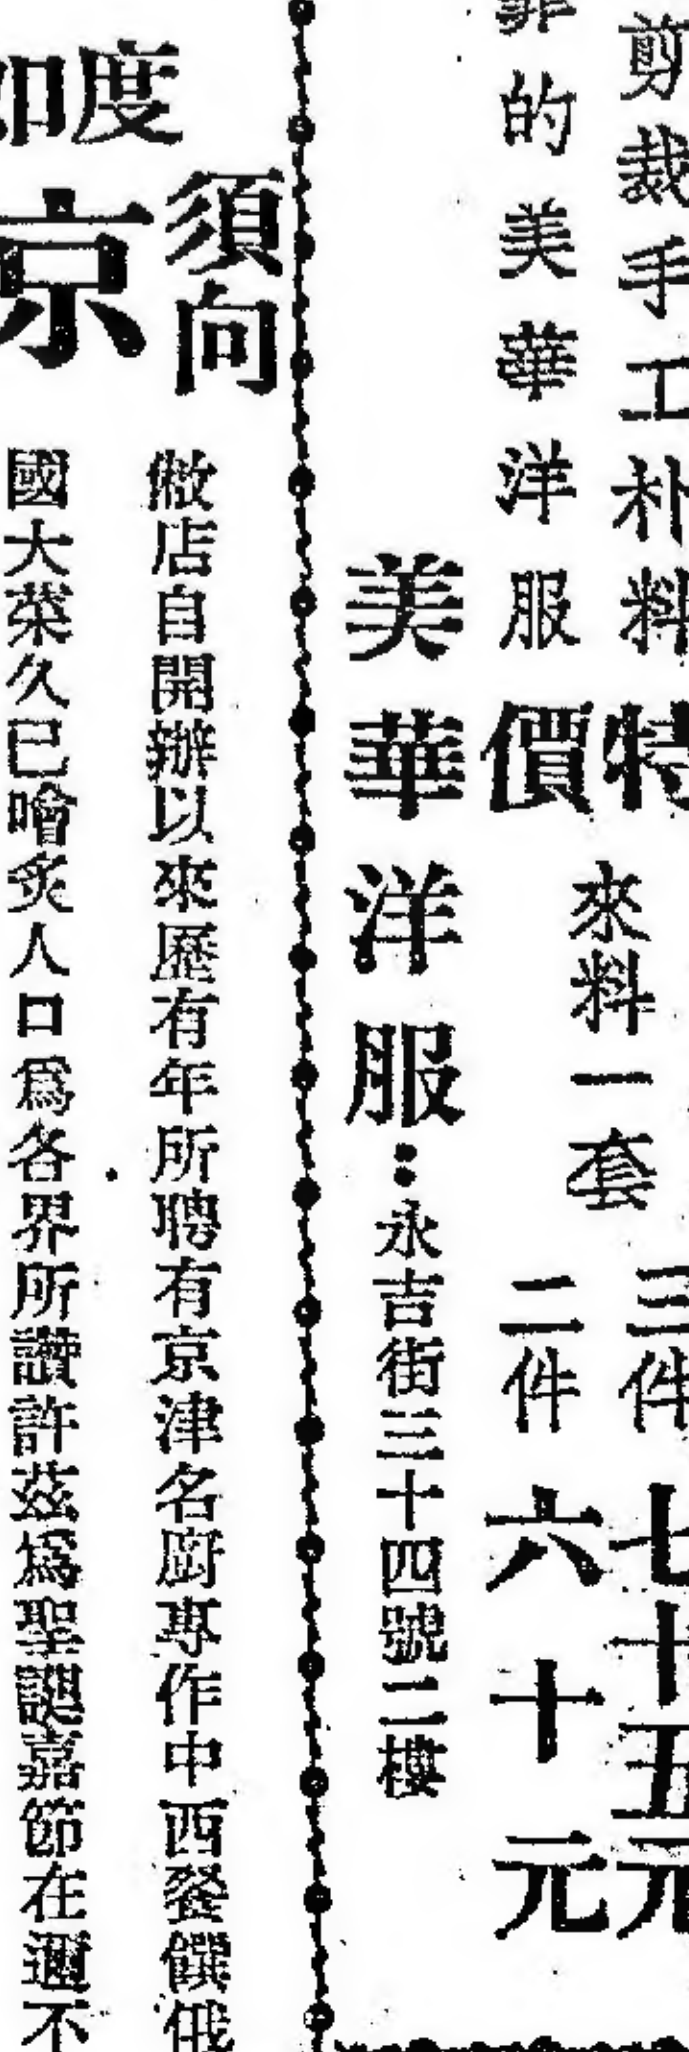 剪裁手工朴料
特
的美華洋服
價
來料一套
三件
七十五元
二件
六十元
美華洋服：永吉街三十四號二樓
須向
度
京
做店自開辦以來歷有年所聘有京津名廚專作中西餐饌俄
國大菜久已噲炙人口爲各界所讚許茲爲聖誕嘉節在邇不